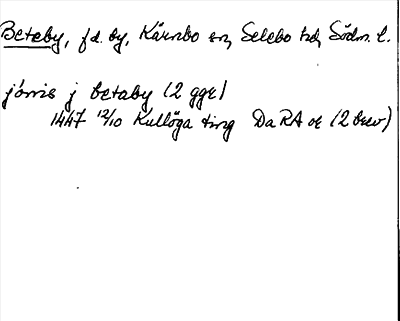 Beteby, f.d. by, Kärnbo sn, Selebo hd, Södm. l.
jönis j betaby (2 ggr)
1447 12/10 Kullöga ting DaRA or (2 brev)